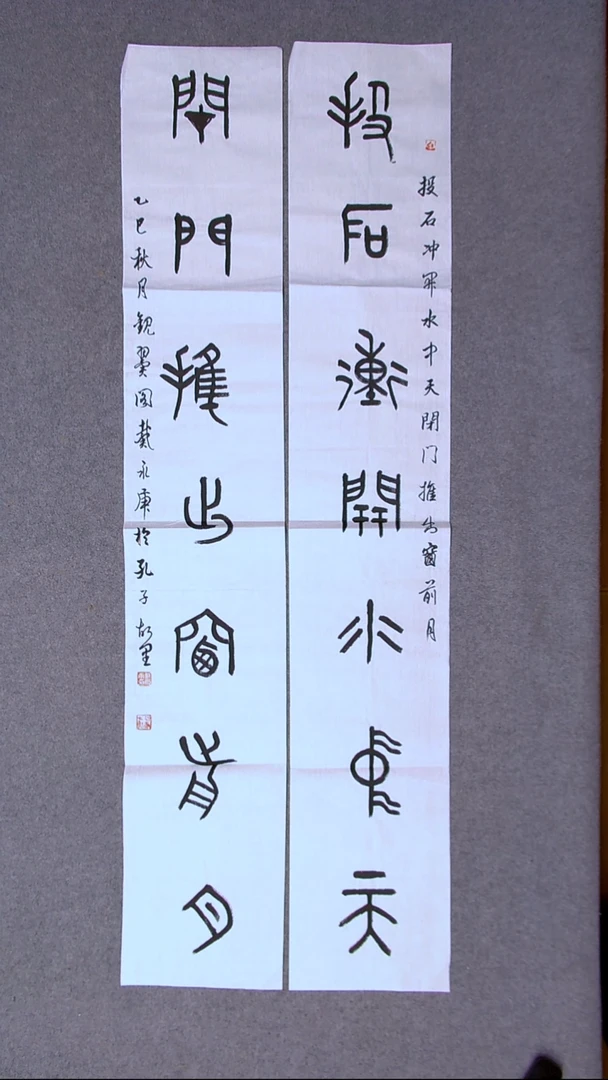 投石冲开水中天閉门推出窗前月
投石衝開水中天
閉門推出窗前月
乙巳秋月觀於孔子故里